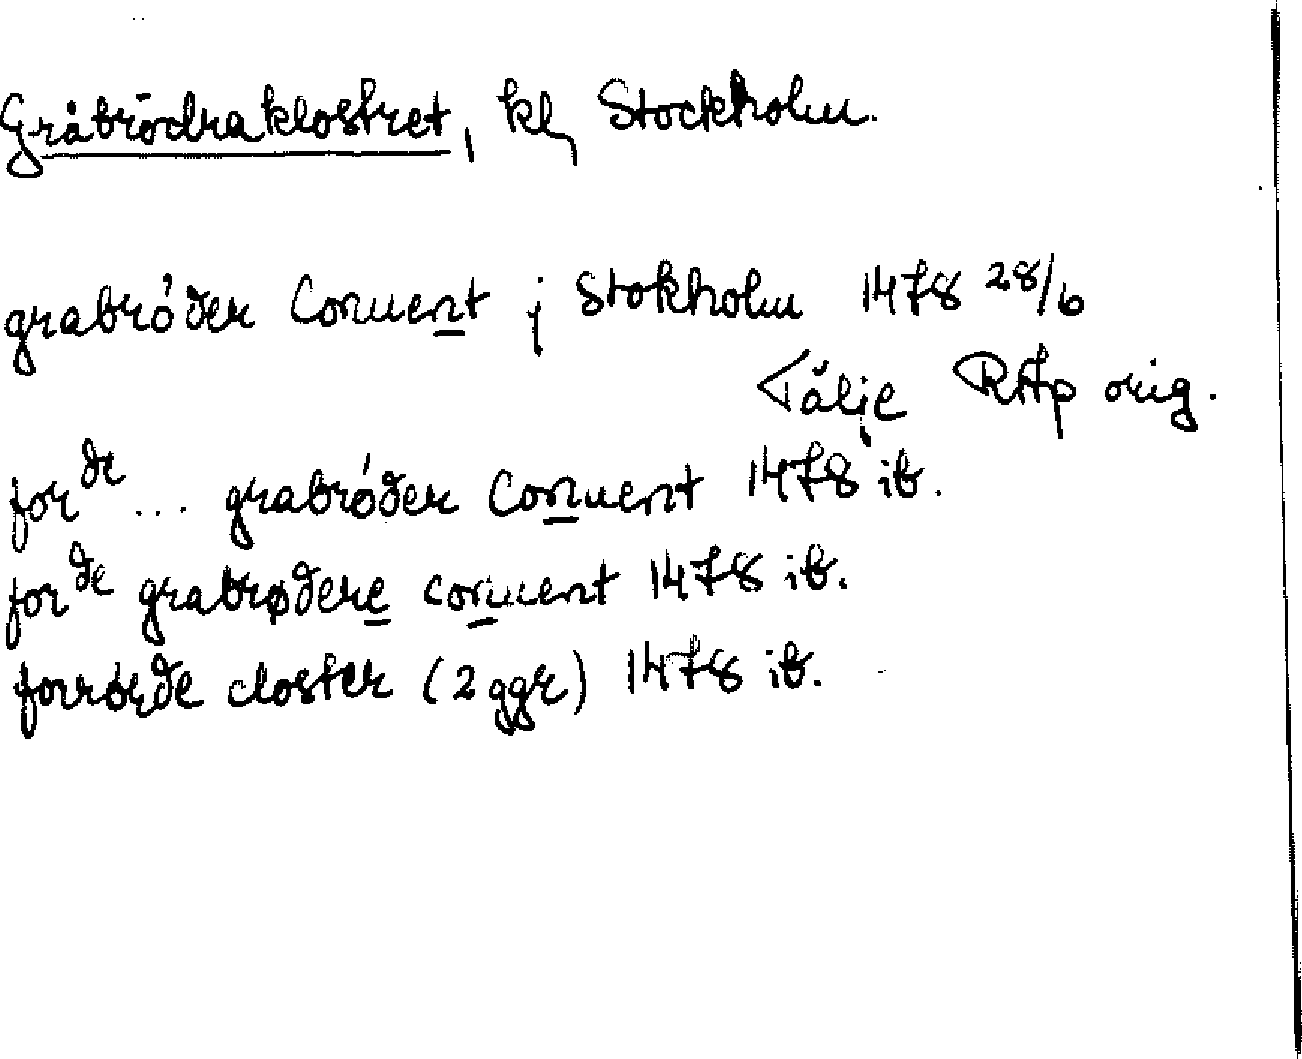 Gråbrödraklostret, kl, Stockholm.
grabróder Conuent j Stokholm 1478 28/6
Tälje RAp orig.
for de ... grabróder Conuent 1478 ib.
for de grabrødere conuent 1478 ib.
closter (2 ggr) 1478 ib.